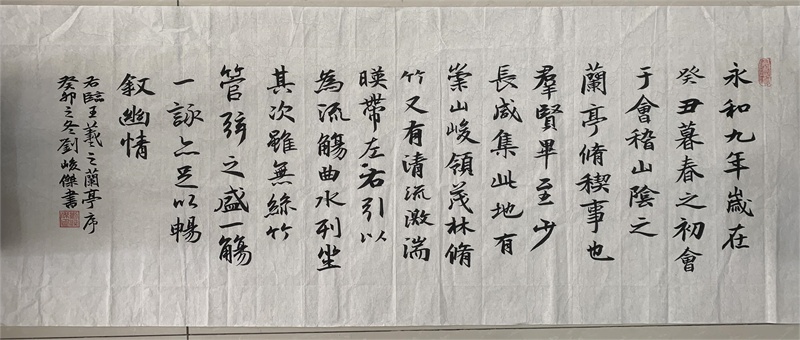 永和九年歲在
癸丑暮春之初會
于會稽山陰之
蘭亭脩稧事也
羣賢畢至少
長咸集此地有
崇山峻領茂林脩
竹又有清流激湍
暎帶左右引以
為流觴曲水列坐
其次雖無絲竹
管弦之盛一觴
一詠亦足以暢
敘幽情
右臨王羲之蘭亭序
癸卯之冬劉峻傑書